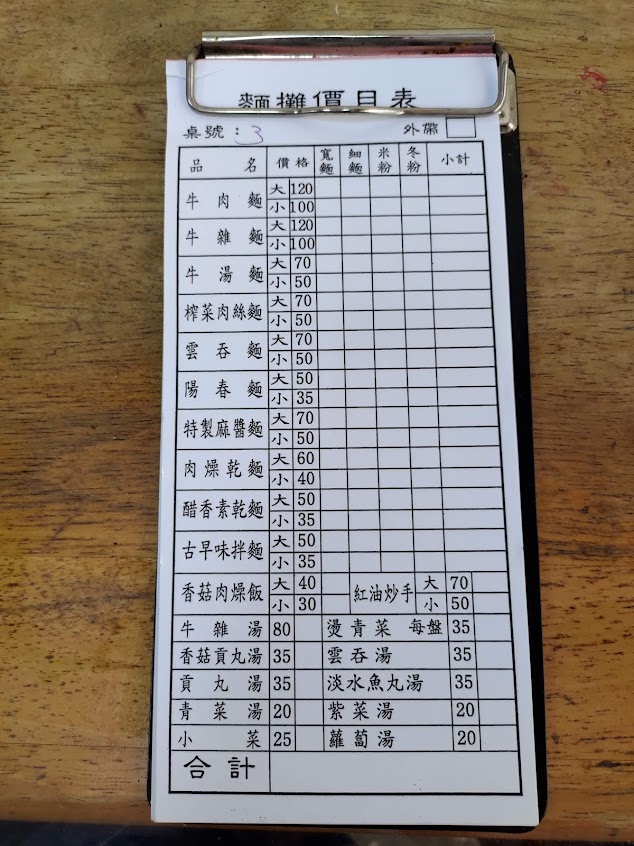 麵攤價目表
桌號：3 外帶
品名 價格 寬麵 細麵 米粉 冬粉 小計
牛肉麵 大 120
小 100
牛雜麵 大 120
小 100
牛湯麵 大 70
小 50
榨菜肉絲麵 大 70
小 50
雲吞麵 大 70
小 50
陽春麵 大 50
小 35
特製麻醬麵 大 70
小 50
肉燥乾麵 大 60
小 40
醋香素乾麵 大 50
小 35
古早味拌麵 大 50
小 35
香菇肉燥飯 大 40 紅油炒手 大 70
小 30 小 50
牛雜湯 80 燙青菜 每盤 35
香菇貢丸湯 35 雲吞湯 35
貢丸湯 35 淡水魚丸湯 35
青菜湯 20 紫菜湯 20
小菜 25 蘿蔔湯 20
合計